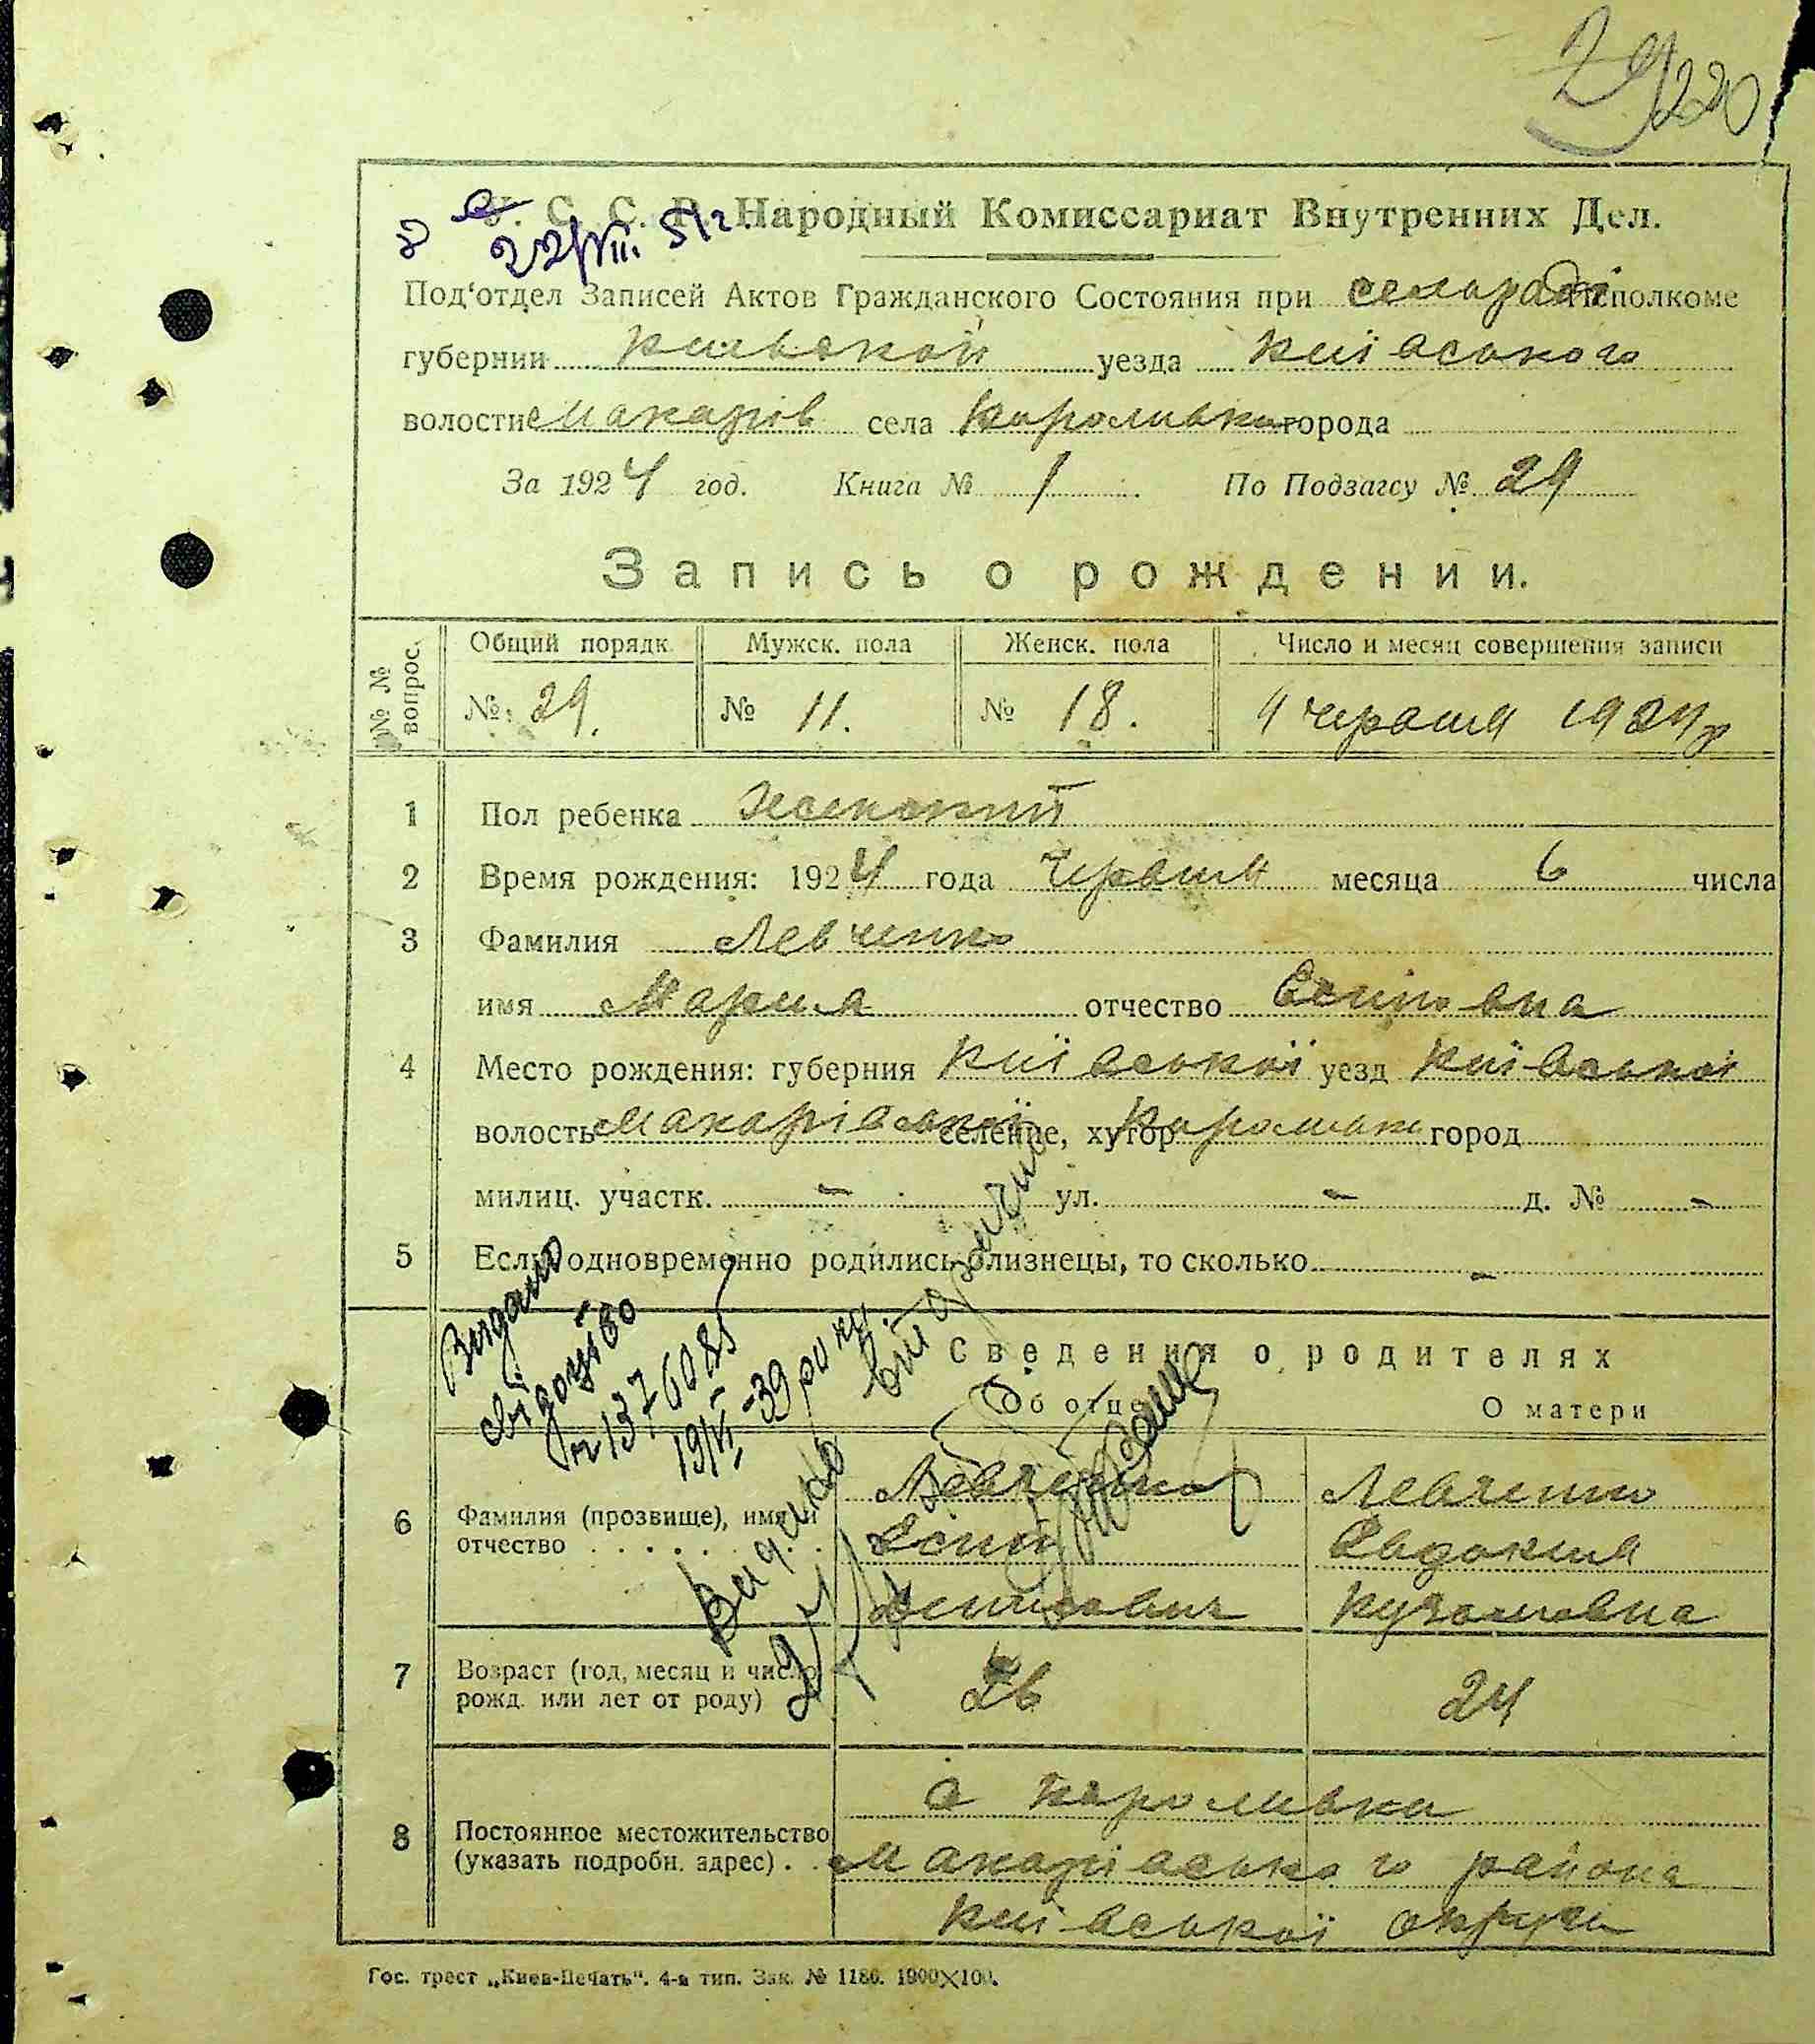 29 220
У. С. С. Р. Народный Комиссариат Внутренних Дел.
22/VIII. 51г.
Под‘отдел Записей Актов Гражданского Состояния при сельраді исполкоме
губернии Киівской уезда Киівського
волости Макарів села Королівки города
За 1924 год. Книга № 1 По Подзагсу № 29
Запись о рождении.
№№ вопрос. Общий порядк. Мужск. пола Женск. пола Число и месяц совершения записи
№ 29. № 11. № 18. 9 червня 1924 р
1 Пол ребенка женский
2 Время рождения: 1924 года червня месяца 6 числа
3 Фамилия Левченко
имя Мария отчество Есиповна
4 Место рождения: губерния Київської уезд Київської
волость Макарівської селение, хутор Королівки город
милиц. участк. – ул. – д. № –
5 Если одновременно родились близнецы, то сколько –
Видано
свідоцтво
№ 1376085
19/VI-39 року
Сведения о родителях
Об отце О матери
6 Фамилия (прозвище), имя и отчество
Левченко Левченко
Есип Евдокия
Денисович Кузьмовна
7 Возраст (год, месяц и число рожд. или лет от роду) 26 24
8 Постоянное местожительство (указать подробн. адрес)
с Королівки
Макарівського района
Київської округи
Гос. трест „Киев-Печать“. 4-я тип. Зак. № 1186. 1900×100.